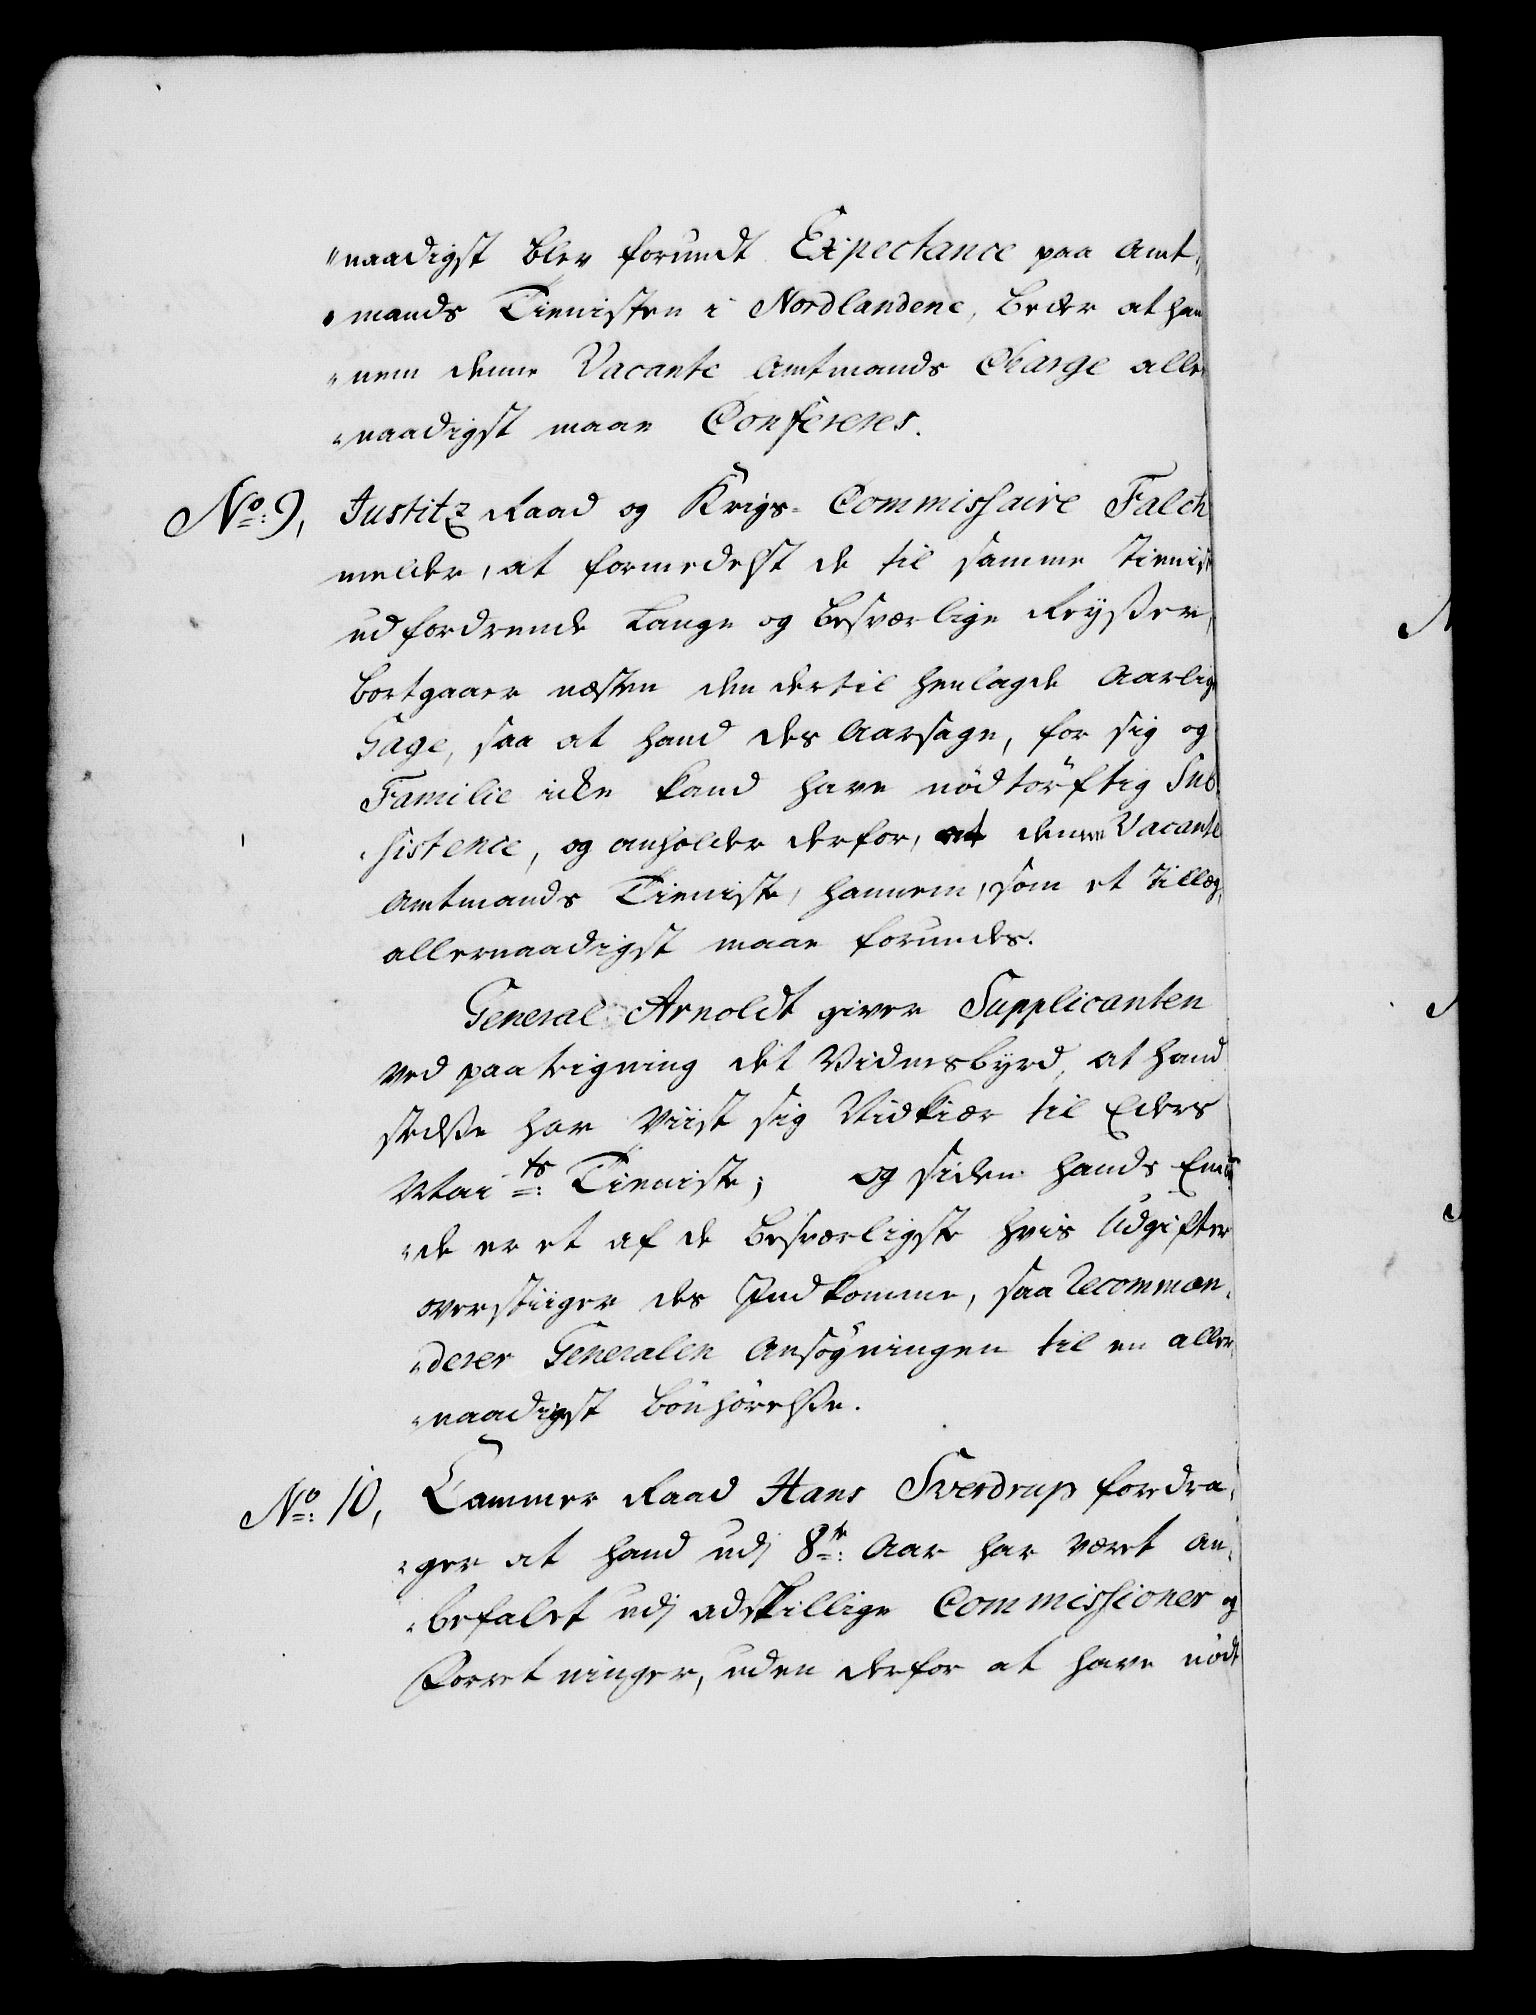 "naadigst blev forundt Expectance paa Amt,
"mands Tienisten i Nordlandene, beder at han
"nem denne Vacante Amtmands Charge aller
"naadigst maae Confereres.
No: 9, Justitz Raad og Krigs- Commissaire Falch
melder, at formedelst de til samme Tienist
udfordrende Lange og besværlige Reyßer,
bortgaaer næsten den dertil henlagde Aarlig
Gage, saa at hand des Aarsage, for sig og
Familie icke kand have nödtörftig Sub
"sistence, og anholder derfor, at denne Vacante
Amtmands Tieniste, hannem, som et Tillæg,
allernaadigst maae forundes.
General Arnoldt giver Supplicanten
ved paategning det Vidnesbyrd, at hand
stedße har Viist sig Nidkiær til Eders
Mai ts: Tieniste; og siden hands Em
"de er et af de besværligste hvis Udgifter
overstiiger des Indkomme, saa recomman,
"derer Generalen Ansögningen til en aller
"naadigst bönhörelße.
No: 10, Cammer Raad Hans Sverdrup fordra,
"ger at hand udj 8te: Aar har været an,
"befalet udj adskillige Commissioner og
Forretninger, uden derfor at have nödt